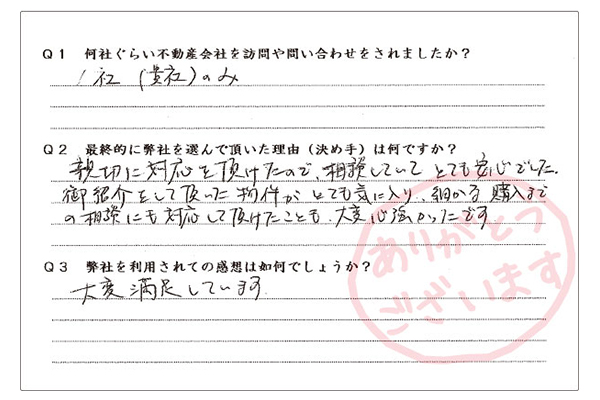 Q1 何社ぐらい不動産会社を訪問や問い合わせをされましたか?
1社 (貴社)のみ
Q2 最終的に弊社を選んで頂いた理由(決め手)は何ですか?
親切に対応を頂けたので、相談していて とても安心でした。
御紹介をして頂いた物件が とても気に入り、細かな 購入まで
の相談にも対応して頂けたことも、大変心強かったです
Q3 弊社を利用されての感想は如何でしょうか?
大変 満足しています
ありがとう
ございます